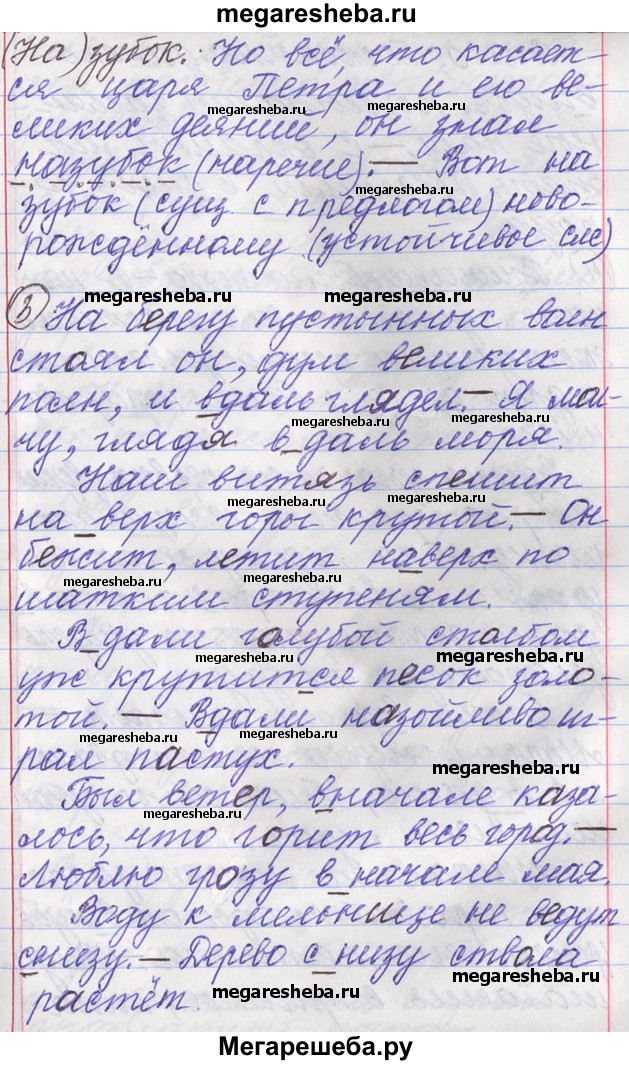 megaresheba.ru
(На) зубок. Но всё, что касает-
ся царя Петра и его ве-
megaresheba.ru megaresheba.ru
ликих деяний, он знал
назубок (наречие). — Вот на
megaresheba.ru
зубок (сущ. с предлогом) ново-
рождённому (устойчивое сл/с)
megaresheba.ru megaresheba.ru
3 На берегу пустынных волн
стоял он, дум великих
megaresheba.ru
полн, и вдаль глядел. — Я мол-
megaresheba.ru
чу, глядя в даль моря.
Наш витязь спешит
megaresheba.ru megaresheba.ru
на верх горы крутой. — Он
бежит, летит наверх по
megaresheba.ru megaresheba.ru
шатким ступеням.
В дали голубой столбом
megaresheba.ru megaresheba.ru
уж крутится песок золо-
той. — Вдали назойливо иг-
megaresheba.ru
рал пастух.
megaresheba.ru
Был ветер, вначале каза-
megaresheba.ru
лось, что горит весь город. —
Люблю грозу в начале мая.
Воду к мельнице не ведут
снизу. — Дерево с низу ствола
megaresheba.ru
растёт.
megaresheba.ru
Мегарешеба.ру